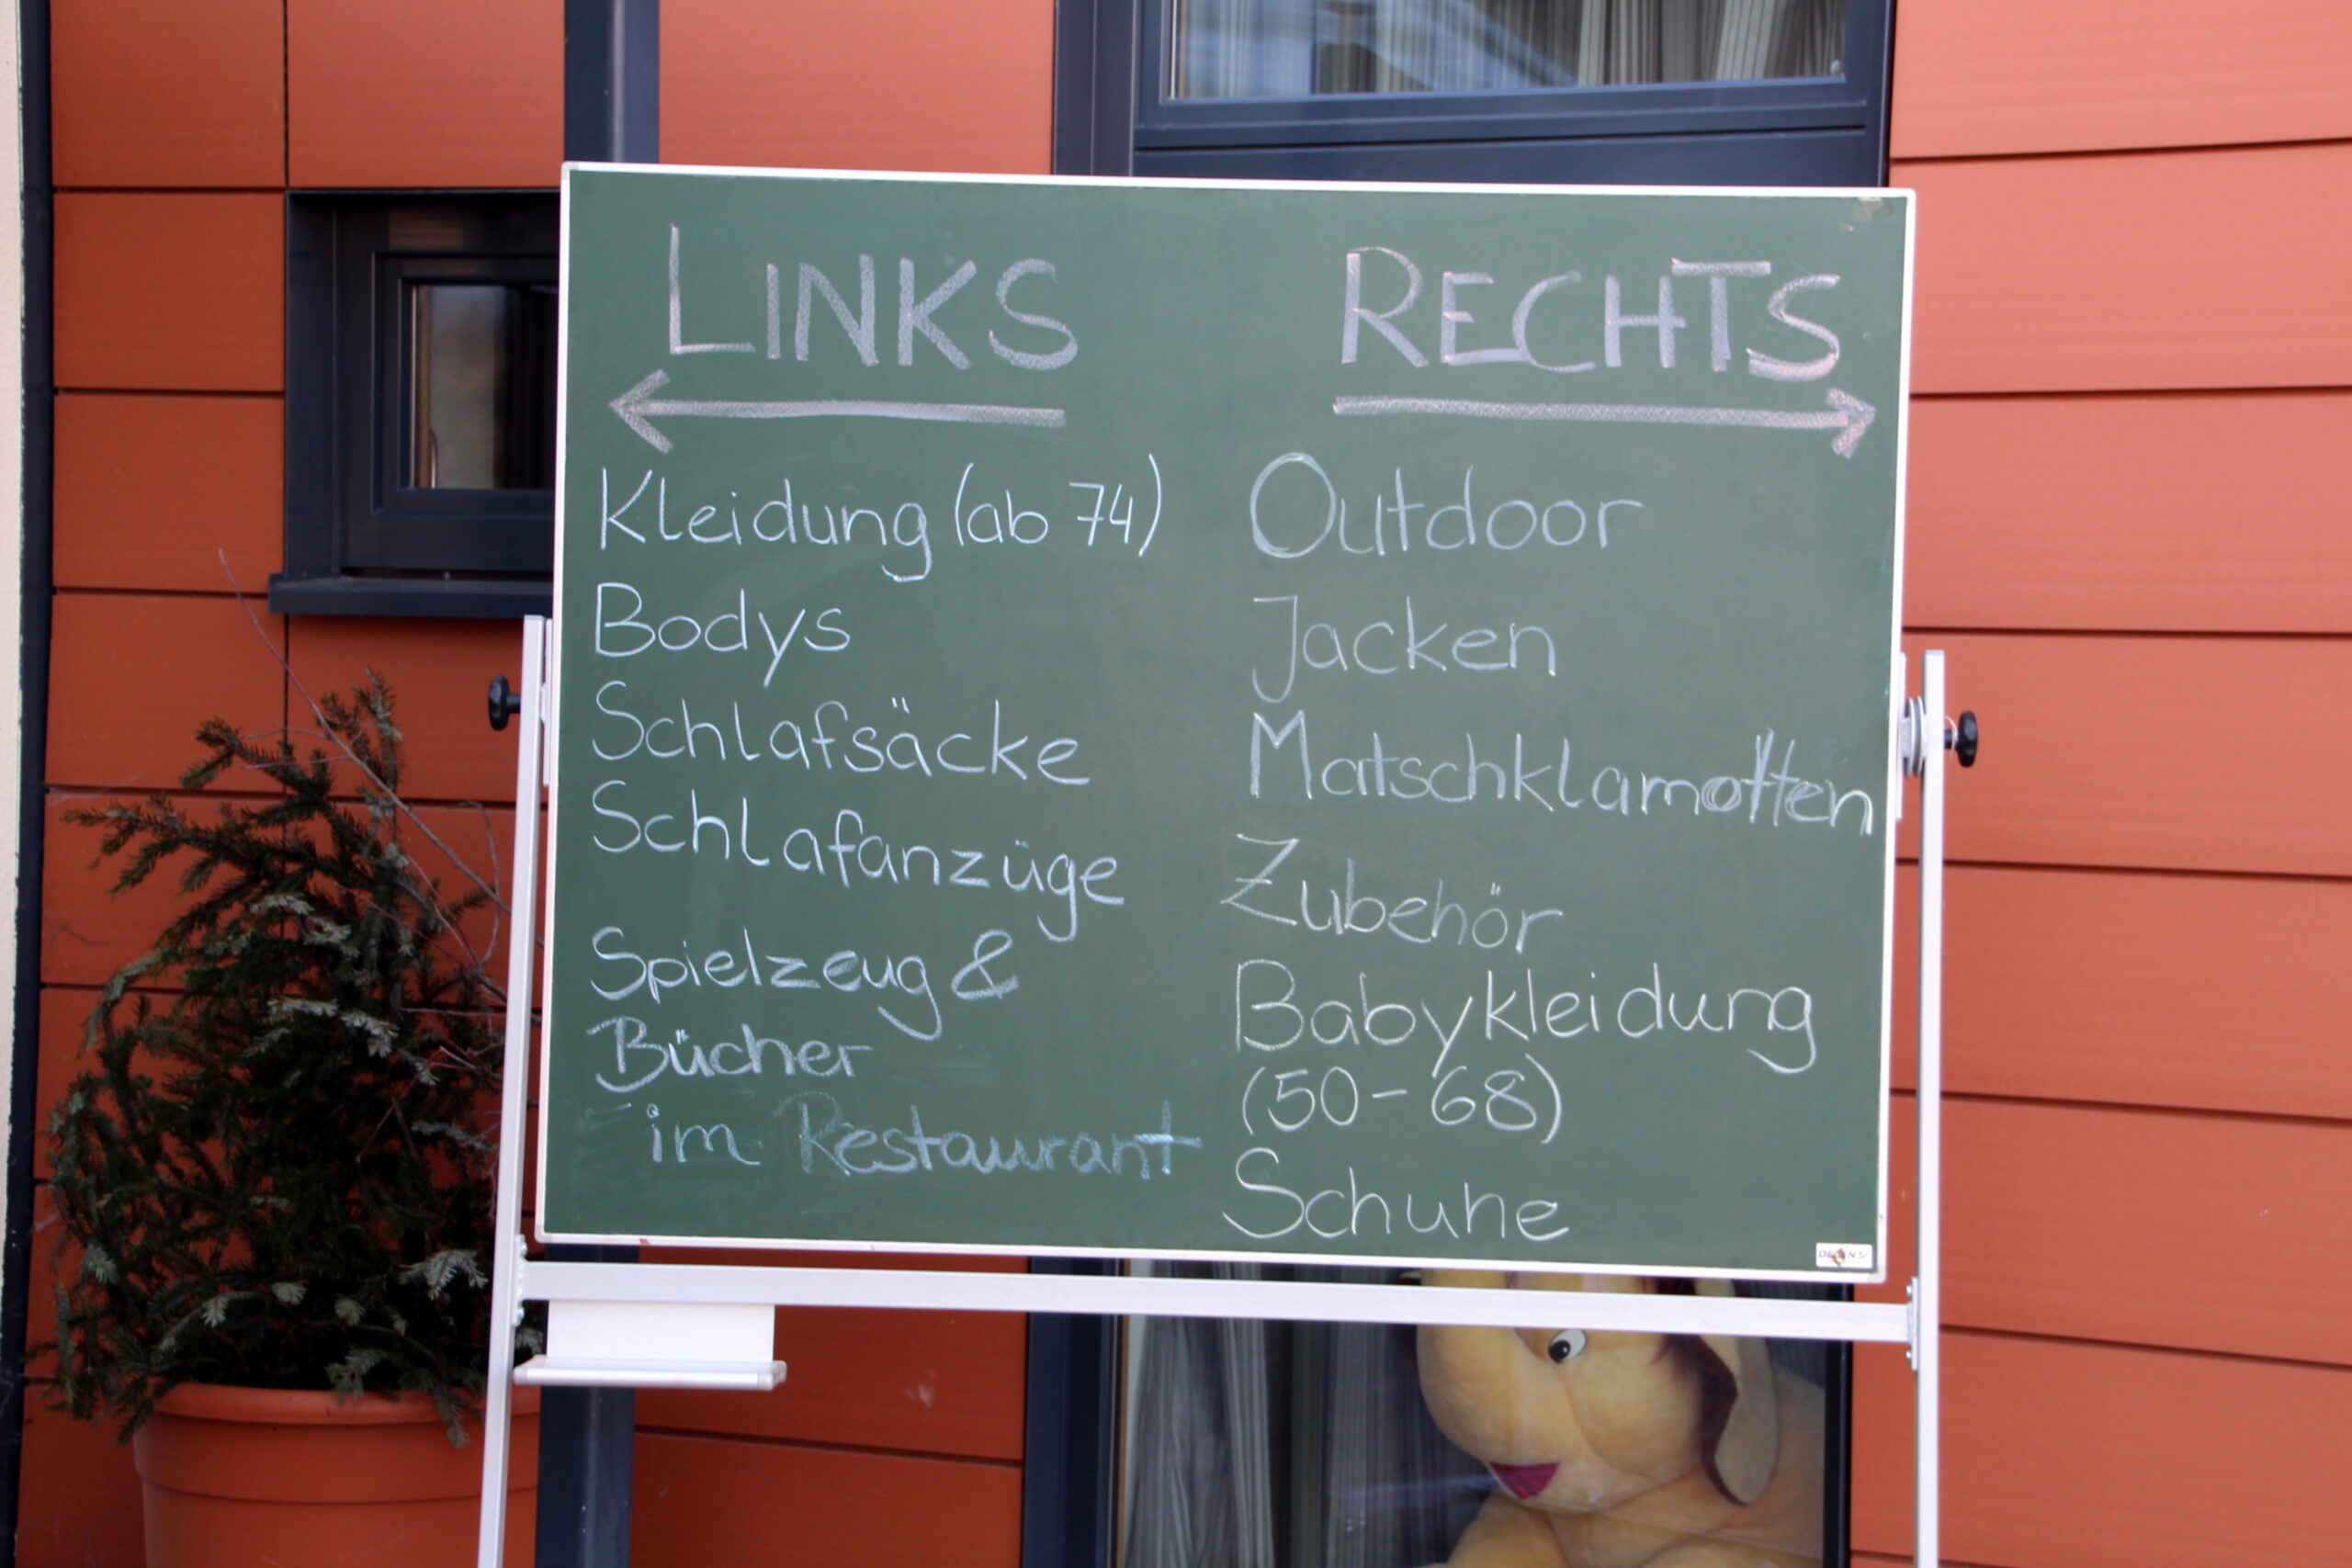 LINKS
Kleidung (ab 74)
Bodys
Schlafsäcke
Schlafanzüge
Spielzeug &
Bücher
im Restaurant
RECHTS
Outdoor
Jacken
Matschklamotten
Zubehör
Babykleidung
(50-68)
Schuhe